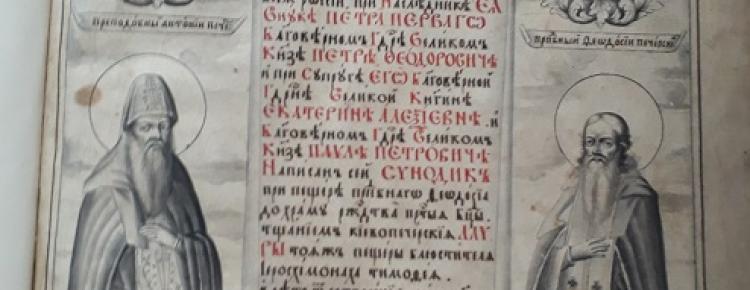 преподобны антоніи пече
прпбный Ѳеѡдосіи печерскі
всеѧ рѡссіи, при Наслѣдникѣ Еѧ
Внукѣ ПЕТРА ПЕРВАГѠ
Благовѣрномъ Гдрѣ Великомъ
Кнзѣ ПЕТРѢ ѲЕОДОРОВИЧѢ
и при Супругѣ ЕГѠ Благовѣрной
Гдрнѣ Великой Кнгинѣ
ЕКАТЕРИНѢ АЛЕѮІЕВНѢ. и
Благовѣрномъ Гдрѣ Великомъ
Кнзѣ ПАУЛѢ ПЕТРОВИЧѢ
Написан сей СУНОДИК
при пещерѣ прпбнагѡ Ѳеѡдосїа
до храму ржⷭтва пртыѧ Бцы
тщанїемъ кіевопечерскїѧ ЛАУ
РЫ тояжъ пещеры блюстителѧ
Іеросхимонаха тимоѳеѧ.